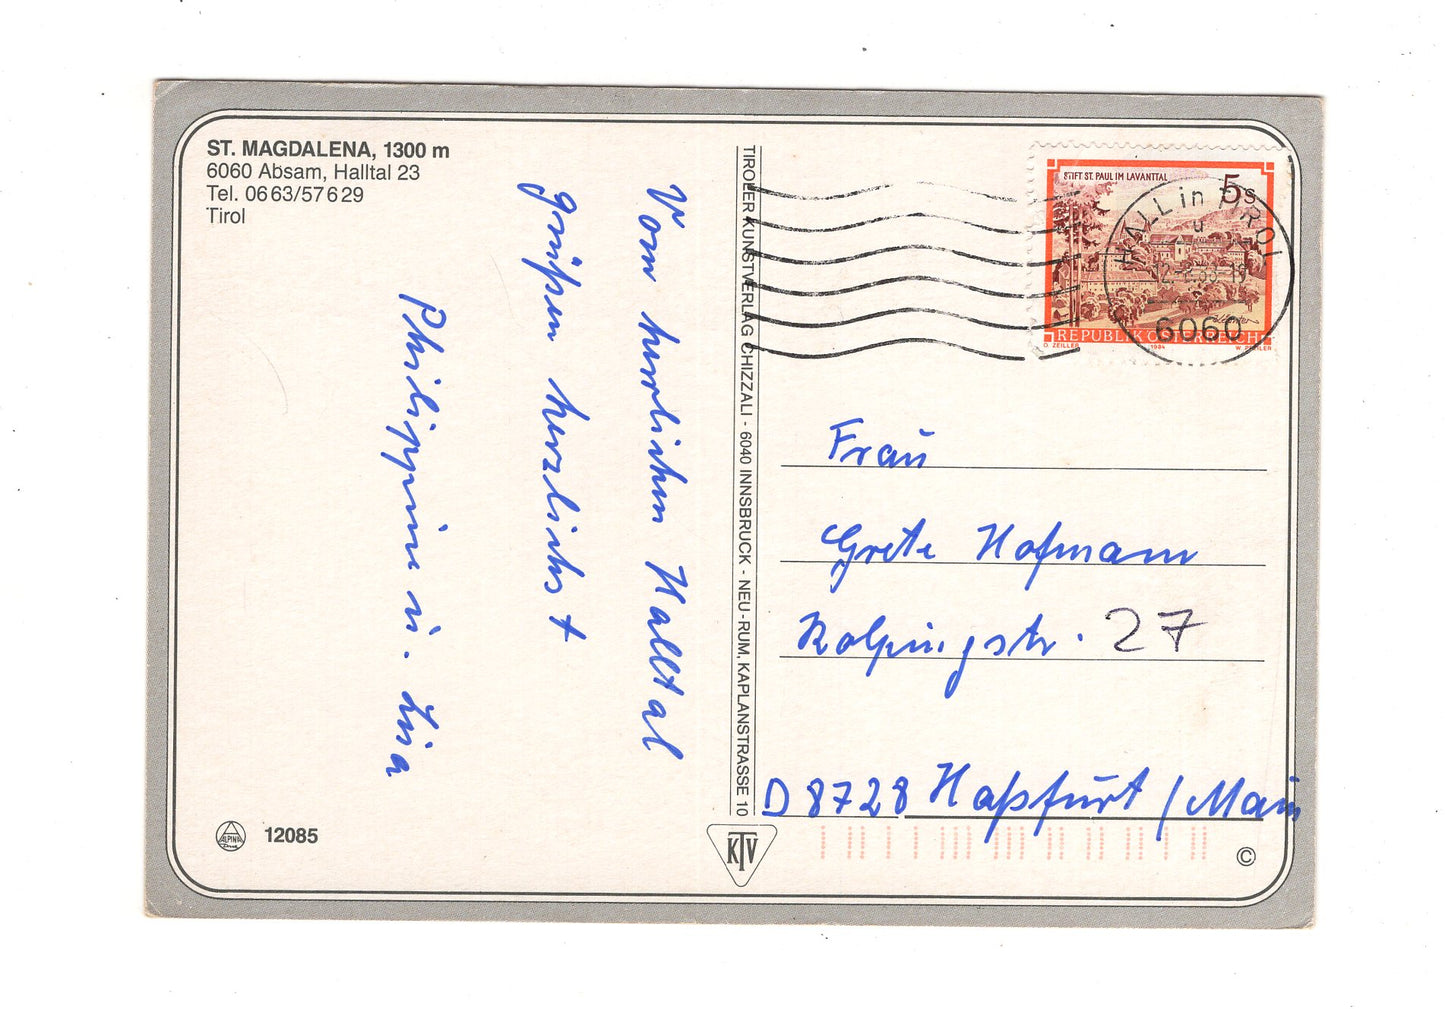 ST. MAGDALENA, 1300 m
6060 Absam, Halltal 23
Tel. 0663/57629
Tirol
Vom herrlichen Halltal
grüßen herzlichst
Philippine u. Lisa
ALPINA
12085
TIROLER KUNSTVERLAG CHIZZALI - 6040 INNSBRUCK - NEU-RUM, KAPLANSTRASSE 10
KTV
STIFT ST. PAUL IM LAVANTTAL
5 S
REPUBLIK ÖSTERREICH
O. ZEILLER 1984 W. PFEILER
HALL in TIROL
6060
Frau
Grete Hofmann
Kolpingstr. 27
D 8728 Haßfurt / Main
©